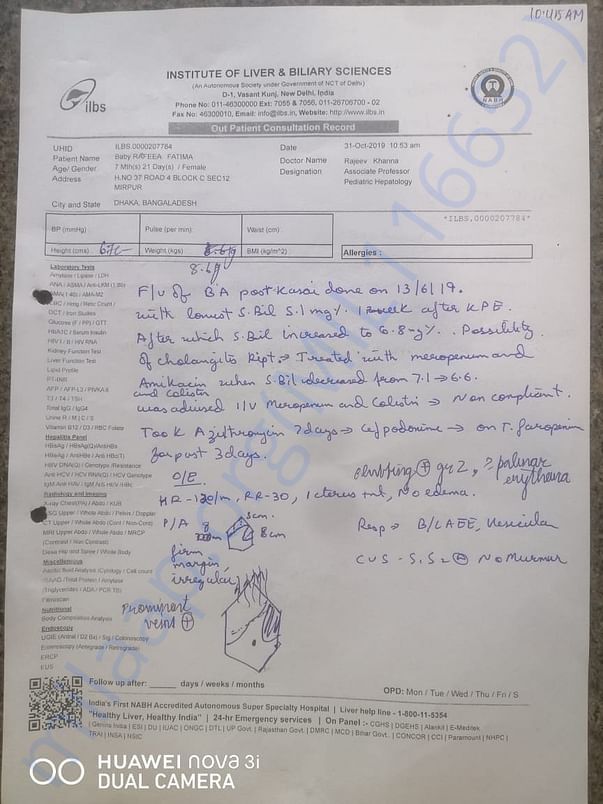 10:415AM
INSTITUTE OF LIVER & BILIARY SCIENCES
(An Autonomous Society under Government of NCT of Delhi)
D-1, Vasant Kunj, New Delhi, India
Phone No: 011-46300000 Ext: 7055 & 7056, 011-26706700 - 02
Fax No: 46300010, Email: info@ilbs.in, Website: http://www.ilbs.in
ilbs
NABH
Out Patient Consultation Record
UHID ILBS.0000207784 Date 31-Oct-2019 10:53 am
Patient Name Baby RAFEEA FATIMA Doctor Name Rajeev Khanna
Age/ Gender 7 Mth(s) 21 Day(s) / Female Designation Associate Professor
Address H.NO 37 ROAD 4 BLOCK C SEC12 Pediatric Hepatology
MIRPUR
City and State DHAKA, BANGALDESH
*ILBS.0000207784*
BP (mmHg) Pulse (per min): Waist (cm)
Height (cms) 67c Weight (kgs) 8.6kg BMI (kg/m²) Allergies :
8.6g
Laboratory Tests
Amylase / Lipase / LDH
ANA / ASMA / Anti-LKM (1:80)
AMA (1:40) / AMA-M2
CBC / Hmg / Retic Count /
DCT / Iron Studies
Glucose (F / PP) / GTT
HbA1C / Serum Insulin
HIV I / II / HIV RNA
Kidney Function Test
Liver Function Test
Lipid Profile
PT-INR
AFP / AFP-L3 / PIVKA II
T3 / T4 / TSH
Total IgG / IgG4
Urine R / M | C / S
Vitamin B12 / D3 / RBC Folate
Hepatitis Panel
HBsAg / HBsAg(Q)/AntiHBs
HBeAg / AntiHBe / Anti HBc(T)
HBV DNA(Q) / Genotype /Resistance
Anti HCV / HCV RNA(Q) / HCV Genotype
IgM Anti HAV / IgM Anti HEV / HBc
Radiology and Imaging
X-ray Chest(PA) / Abdo / KUB
USG Upper / Whole Abdo / Pelvis / Doppler
CT Upper / Whole Abdo (Cont / Non-Cont)
MRI Upper Abdo / Whole Abdo / MRCP
(Contrast / Non Contrast)
Dexa Hip and Spine / Whole Body
Miscellaneous
Ascitic fluid Analysis /Cytology / Cell count
/SAAG /Total Protein / Amylase
(Triglycerides / ADA / PCR TB)
Fibroscan
Nutritional
Body Composition Analysis
Endoscopy
UGIE (Antral / D2 Bx) / Sig / Colonoscopy
Enteroscopy (Antegrade / Retrograde)
ERCP
EUS
F/U of BA post Kasai done on 13/6/19.
with lowest S.Bil 5.1 mg% 1 week after KPE.
After which S.Bil increased to 6.8 mg%. Possibility
of cholangitis kept → Treated with meropenem and
Amikacin when S.Bil decreased from 7.1 → 6.6.
and Colistin
was advised I/V Meropenem and Colistin → Non compliant.
Took Azithromycin 7days → Cefpodoxime → on T. faropenem
for past 3 days.
O/E
clubbing ⊕ gr 2, palmar erythema
HR-120/m, RR-30, Icterus +nt, No edema.
P/A 8 5cm. 8cm
Resp → B/L AEE, Vesicular
firm
margin,
irregular
CVS - S1S2 ⊕ No Murmur
Prominent
veins ⊕
Follow up after: ______ days / weeks / months
OPD: Mon / Tue / Wed / Thu / Fri / S
India's First NABH Accredited Autonomous Super Specialty Hospital | Liver help line - 1-800-11-5354
"Healthy Liver, Healthy India" | 24-hr Emergency services | On Panel :- CGHS | DGEHS | Alankit | E-Meditek
| Genins India | ESI | DU | IUAC | ONGC | DTL | UP Govt | Rajasthan Govt. | DMRC | MCD | Bihar Govt. | CONCOR | CCI | Paramount | NHPC |
TRAI | INSA | NSIC
HUAWEI nova 3i
DUAL CAMERA